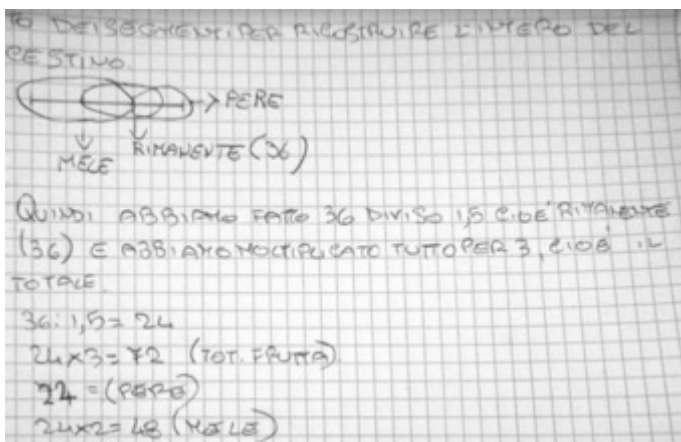 TO DEI SEGMENTI PER RICOSTRUIRE L'INTERO DEL
CESTINO
PERE
MELE RIMANENTE (36)
QUINDI ABBIAMO FATTO 36 DIVISO 1,5 CIOÈ RIMANENTE
(36) E ABBIAMO MOLTIPLICATO TUTTO PER 3, CIOÈ IL
TOTALE.
36:1,5=24
24x3=72 (TOT. FRUTTA)
24 =(PERE)
24x2=48 (MELE)